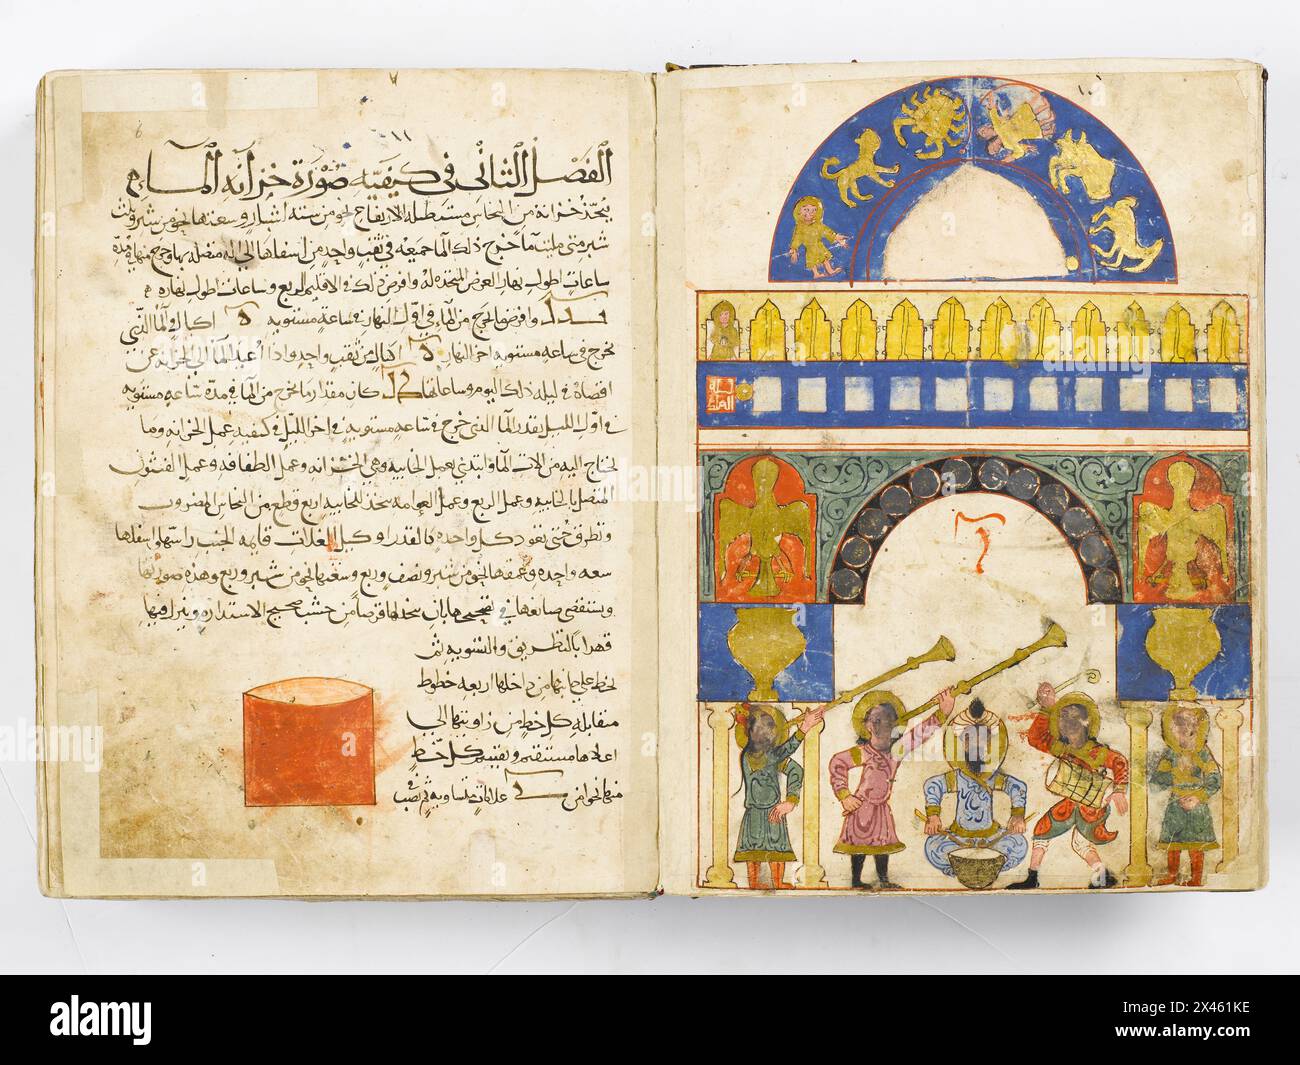 ١١
6
الفصل الثاني في كيفية صورة خزانة الماء
يتخذ خزانة من النحاس مستطيلة الارتفاع نحو من ستة اشبار وسعتها نحو من شبر وثلث
شبر متى مليت ماء خرج ذلك الماء جميعه في ثقب واحد من اسفلها الى الة متصلة بها وخرج منها في مدة
ساعات اطول نهار العرض المتخذة له وافرض ذلك الاقليم الرابع وساعات اطول نهاره
وافرض الخرج من الماء في اول النهار في ساعة مستوية اكيال والماء الذي
يخرج في ساعة مستوية اخر النهار اكيال من ثقب واحد واذا اعيد الماء الى الخزانة عن
في ليلة ذلك اليوم وساعاتها كان مقدار ما يخرج من الماء في مدة ساعة مستوية
في اول الليل بقدر الماء الذي خرج في ساعة مستوية في اخر الليل في كيفية عمل الخزانة وما
يحتاج اليه من الات الماء وابتدئ بعمل الخابية وهي الخزانة وعمل الطفافة وعمل
المتصل بالخابية وعمل الربع وعمل العوامة يتخذ للخابية اربع قطع من النحاس المضروب
وتطرق حتى تعود كل واحدة كالقدر او كبل قايمة الجنب راسها واسفلها
سعة واحدة وعمقها نحو من شبر ونصف وربع وسعتها نحو من شبر وربع وهذه صورتها
ويستقصي صانعها في تصحيحها بان يتخذ لها قرصا من خشب صحيح الاستدارة وينزل فيها
قهرا بالتطريق والتسوية ثم
يخط على جانبها من داخلها اربعة خطوط
متقابلة كل خط من زاويتها الى
اعلاها مستقيم ويقسم كل خط
منها نحوا من علامات متساوية ثم تصب في
١٠
alamy
Image ID: 2X461KE
www.alamy.com